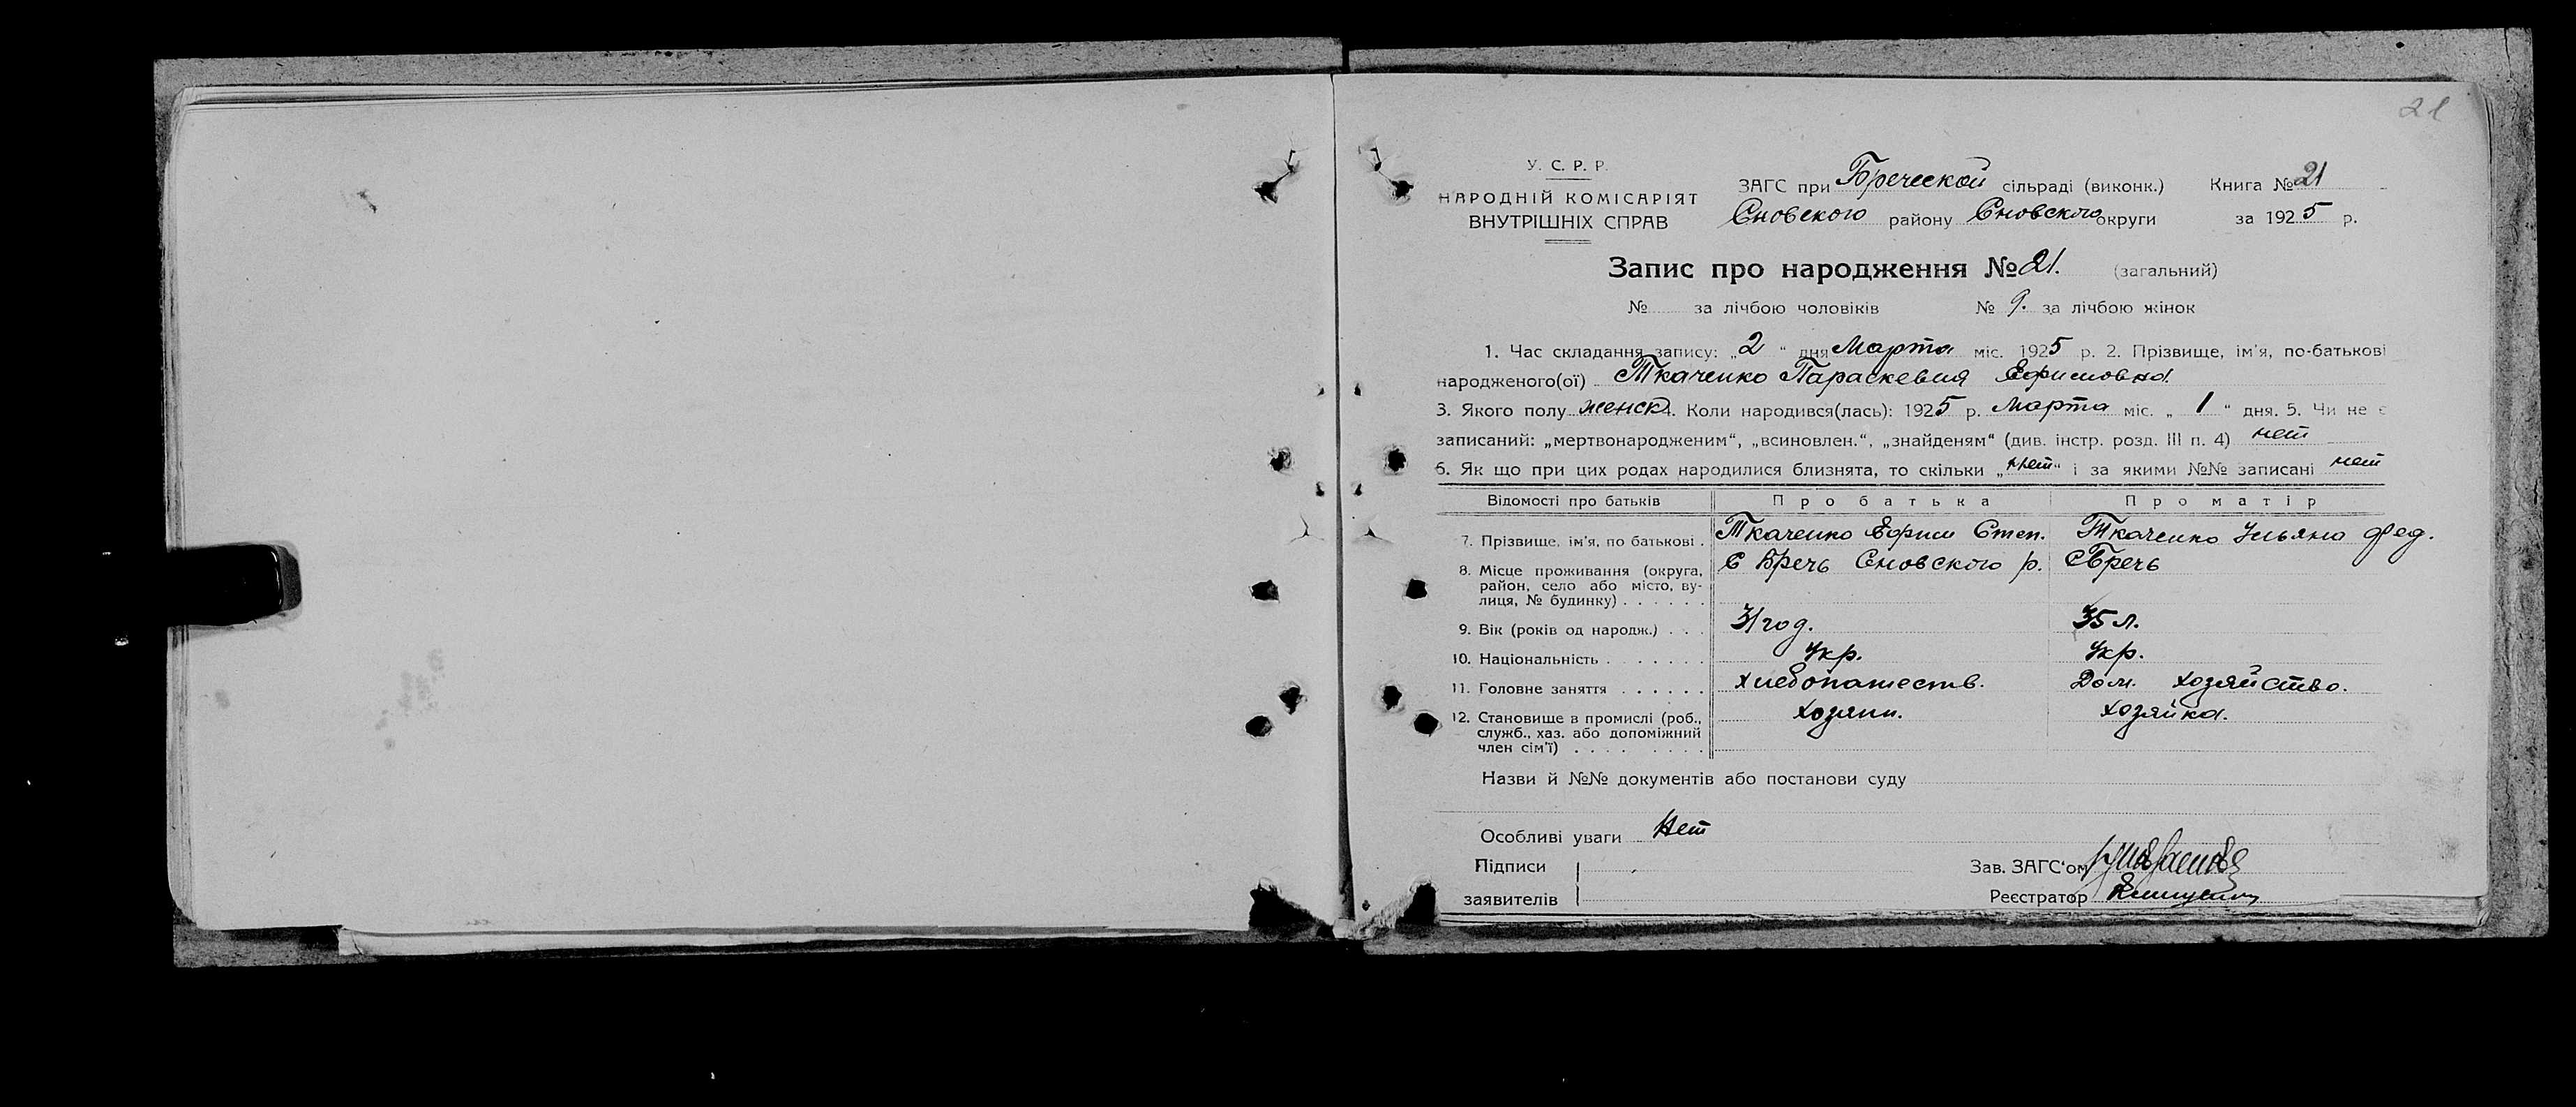 21
У. С. Р. Р.
НАРОДНІЙ КОМІСАРІЯТ
ВНУТРІШНІХ СПРАВ
ЗАГС при Бреческой сільраді (виконк.) Книга № 21
Сновского району Сновского округи за 1925 р.
Запис про народження № 21. (загальний)
№ за лічбою чоловіків № 9. за лічбою жінок
1. Час складання запису: „2" дня Марта міс. 1925 р. 2. Прізвище, ім'я, по-батькові
народженого(ої) Ткаченко Параскевия Ефимовна.
3. Якого полу женск. 4. Коли народився(лась): 1925 р. Марта міс. „1" дня. 5. Чи не є
записаний: „мертвонародженим", „всиновлен.", „знайденям" (див. інстр. розд. III п. 4) нет
6. Як що при цих родах народилися близнята, то скільки „нет" і за якими №№ записані нет
Відомості про батьків Про батька Про матір
7. Прізвище, ім'я, по батькові . Ткаченко Ефим Степ. Ткаченко Ульяна Фед.
8. Місце проживання (округа, район, село або місто, ву-лиця, № будинку) . . . . . . С Бречь Сновского р. С Бречь
9. Вік (років од народж.) . . . 31 год. 35 л.
10. Національність . . . . . . . Укр. Укр.
11. Головне заняття . . . . . . хлебопашеств. Дом. хозяйство.
12. Становище в промислі (роб., служб., хаз. або допоміжний член сім'ї) . . . . . . . . хозяин. хозяйка.
Назви й №№ документів або постанови суду
Особливі уваги Нет
Підписи
заявителів
Зав. ЗАГС'ом
Реєстратор